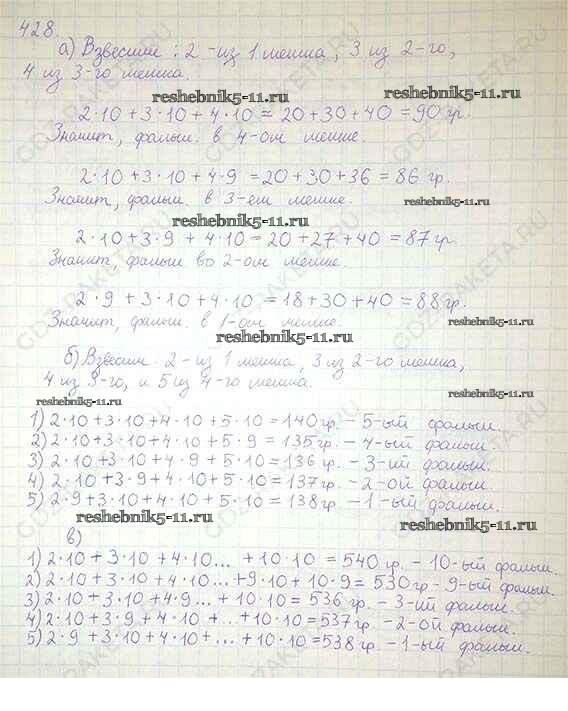 428.
а) Взвесим: 2 - из 1 мешка, 3 из 2-го,
4 из 3-го мешка.
reshebnik5-11.ru
2·10 + 3·10 + 4·10 = 20 + 30 + 40 = 90 гр.
Значит, фальш. в 4-ом мешке.
2·10 + 3·10 + 4·9 = 20 + 30 + 36 = 86 гр.
Значит, фальш. в 3-ем мешке.
reshebnik5-11.ru
reshebnik5-11.ru
2·10 + 3·9 + 4·10 = 20 + 27 + 40 = 87 гр.
Значит, фальш во 2-ом мешке.
2·9 + 3·10 + 4·10 = 18 + 30 + 40 = 88 гр.
Значит, фальш. в 1-ом мешке.
reshebnik5-11.ru
б) Взвесим. 2 - из 1 мешка, 3 из 2-го мешка,
4 из 3-го, и 5 из 4-го мешка.
reshebnik5-11.ru
1) 2·10 + 3·10 + 4·10 + 5·10 = 140 гр. - 5-ый фальш.
2) 2·10 + 3·10 + 4·10 + 5·9 = 135 гр. - 4-ый фальш.
3) 2·10 + 3·10 + 4·9 + 5·10 = 136 гр. - 3-ий фальш.
4) 2·10 + 3·9 + 4·10 + 5·10 = 137 гр. - 2-ой фальш.
5) 2·9 + 3·10 + 4·10 + 5·10 = 138 гр. - 1-ый фальш.
reshebnik5-11.ru
reshebnik5-11.ru
в)
1) 2·10 + 3·10 + 4·10... + 10·10 = 540 гр. - 10-ый фальш.
2) 2·10 + 3·10 + 4·10... + 9·10 + 10·9 = 530 гр - 9-ый фальш.
3) 2·10 + 3·10 + 4·9... + 10·10 = 536 гр. - 3-ий фальш.
4) 2·10 + 3·9 + 4·10 + ... + 10·10 = 537 гр. - 2-ой фальш.
5) 2·9 + 3·10 + 4·10 + ... + 10·10 = 538 гр. - 1-ый фальш.